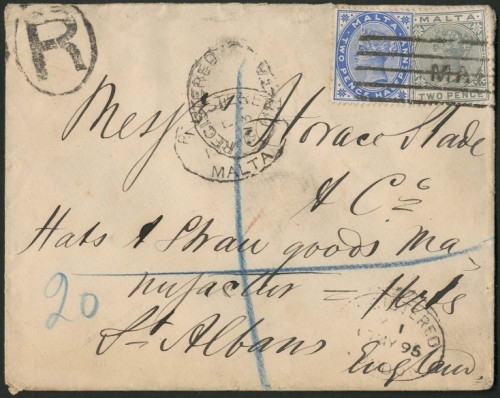 R
MALTA
TWO PENCE HALFPENNY
MALTA
TWO PENCE
REGISTERED
MALTA
Mess Horace Slade
& Co
Hats & Straw goods Ma-
nufacter = Herts
20
St Albans
England
REGISTERED
1
95